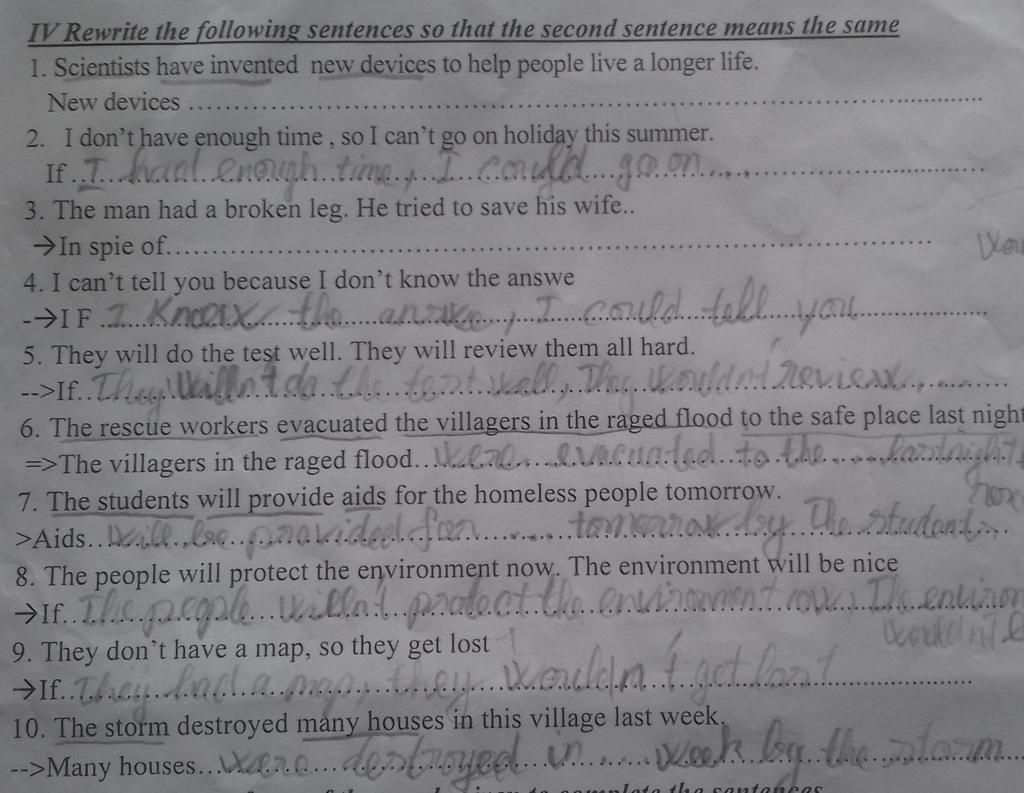 IV Rewrite the following sentences so that the second sentence means the same
1. Scientists have invented new devices to help people live a longer life.
New devices ........................................................................
2. I don't have enough time , so I can't go on holiday this summer.
If I had enough time, I could go on ...........
3. The man had a broken leg. He tried to save his wife..
→In spie of........................................................................
4. I can't tell you because I don't know the answe
-→I F I the , I could tell you
5. They will do the test well. They will review them all hard.
-->If. They do the test well, They wouldn't review
6. The rescue workers evacuated the villagers in the raged flood to the safe place last night
=>The villagers in the raged flood were evacuated to the ..... last night
7. The students will provide aids for the homeless people tomorrow.
>Aids will be provided for ........ by The student
8. The people will protect the environment now. The environment will be nice
→If. The people protect the environment now, The
wouldn't
9. They don't have a map, so they get lost
→If. They had a map, they wouldn't get lost
10. The storm destroyed many houses in this village last week.
-->Many houses were destroyed in ...... week by the storm
to complete the sentences